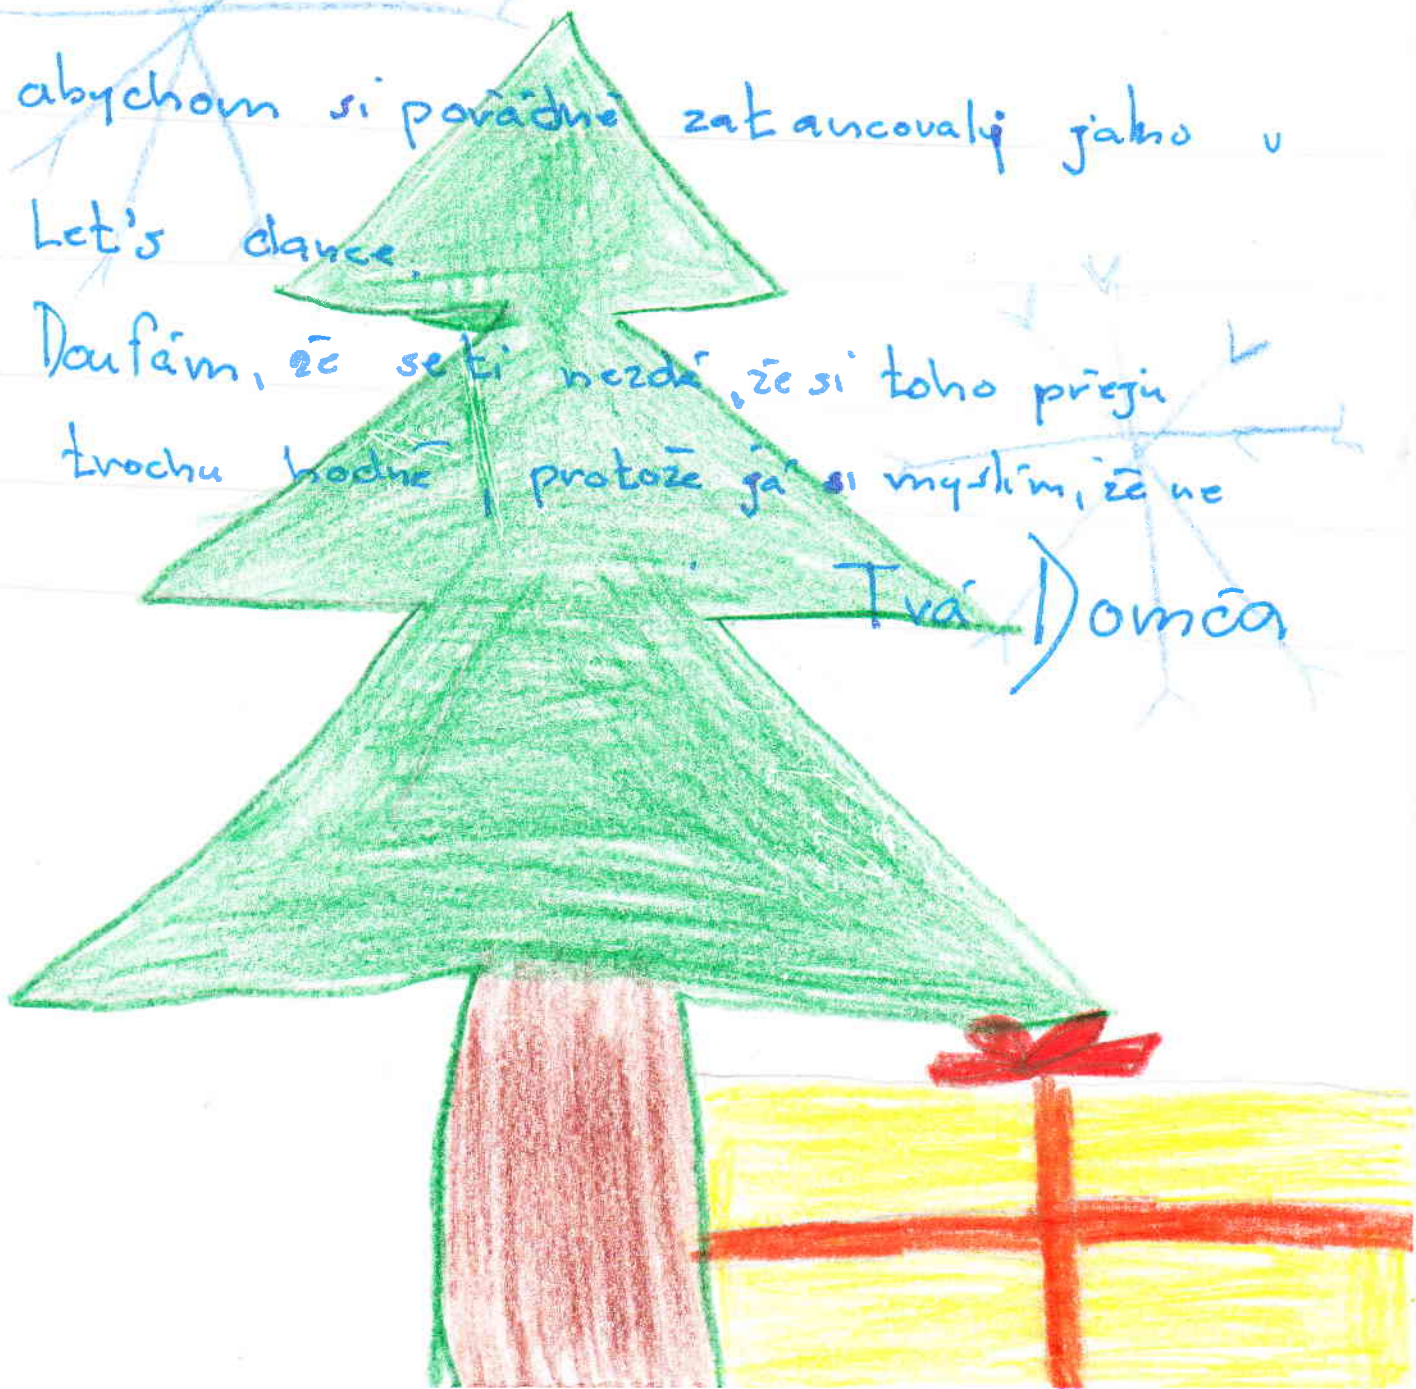 abychom si pořádně zatancovaly jako v
Let's dance.
Doufám, že se ti nezdá, že si toho přeju
trochu hodně, protože já si myslím, že ne
Tvá Domča